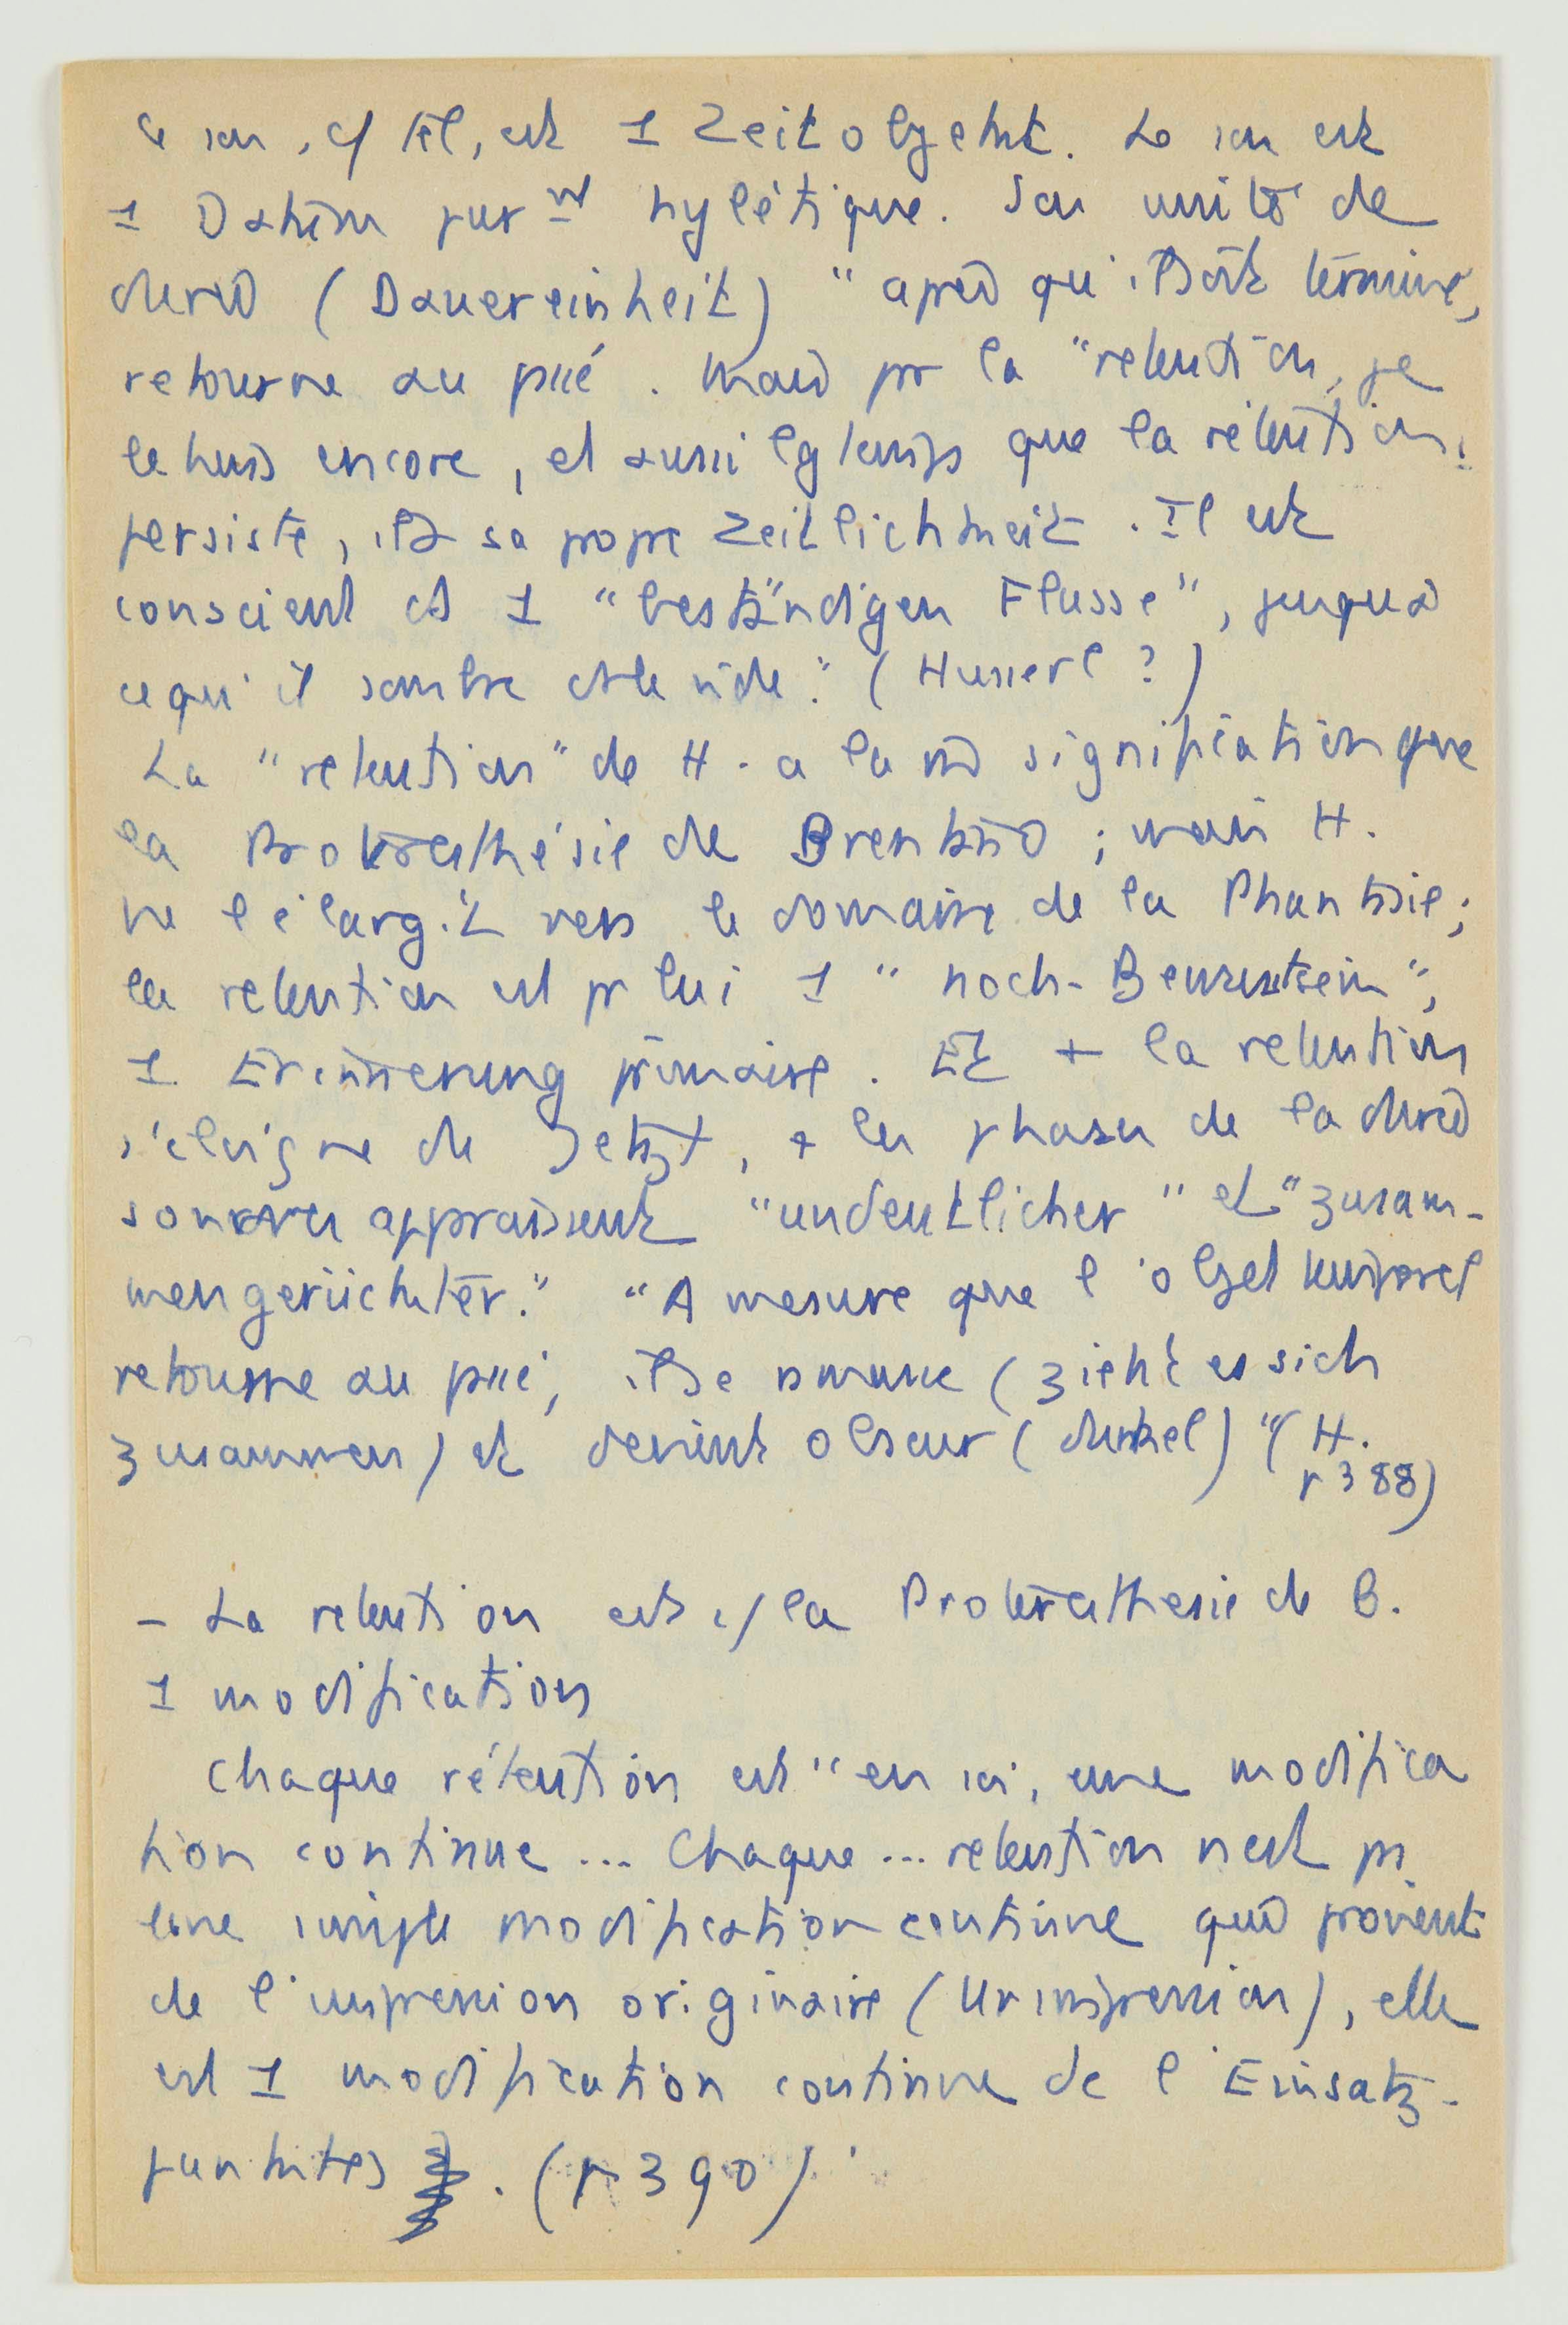 Le son, c/ tel, est 1 Zeitobjekt. Le son est
1 Datum pur nt hylétique. Son unité de
durée (Dauereinheit) "après qu'il soit terminé,
retourne au passé. Mais par la "retention, je
le tiens encore, et aussi lgtemps que la rétention
persiste, il a sa propre Zeitlichkeit. Il est
conscient ds 1 "beständigen Flusse", jusqu'à
ce qu'il sombre ds le vide." (Husserl ?)
La "retention" de H. a la m signification que
la Proterasthésie de Brentano ; mais H.
ne l'élargit vers le domaine de la Phantasie ;
la retention est pr lui 1 "noch-Bewusstsein",
1 Erinnerung primaire. Et + la retention
s'éloigne du Jetzt, + les phases de la durée
sonores apparaissent "undeutlicher" et "zusam-
mengerückter." "A mesure que l'objet temporel
retourne au passé, il se (zieht es sich
zusammen) et devient obscur (dunkel)" (H.
p 388)
- La retention est c/ la Proterasthesie de B.
1 modification
Chaque rétention est "en soi, une modifica
tion continue ... Chaque ... retention n'est pas
une simple modification continue qui provient
de l'impression originaire (Urimpression), elle
est 1 modification continue de l'Einsatz-
punktes. (p 390)